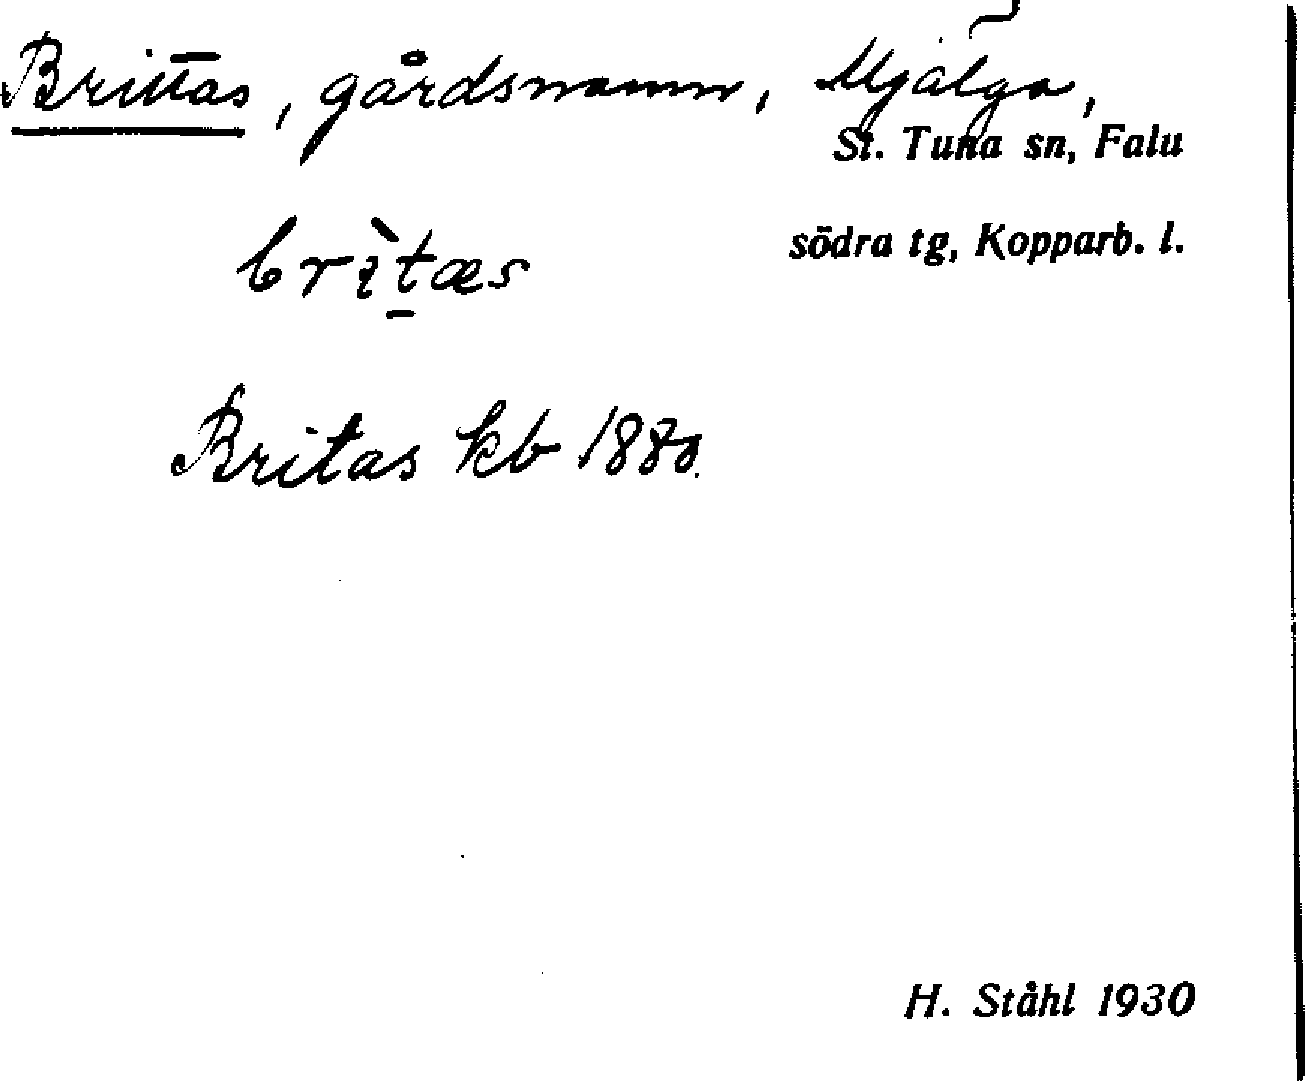 Brittas, gårdsnamn, Mjälga,
St. Tuna sn, Falu
södra tg, Kopparb. l.
brìt̠æs
Britas kb 1880.
H. Ståhl 1930